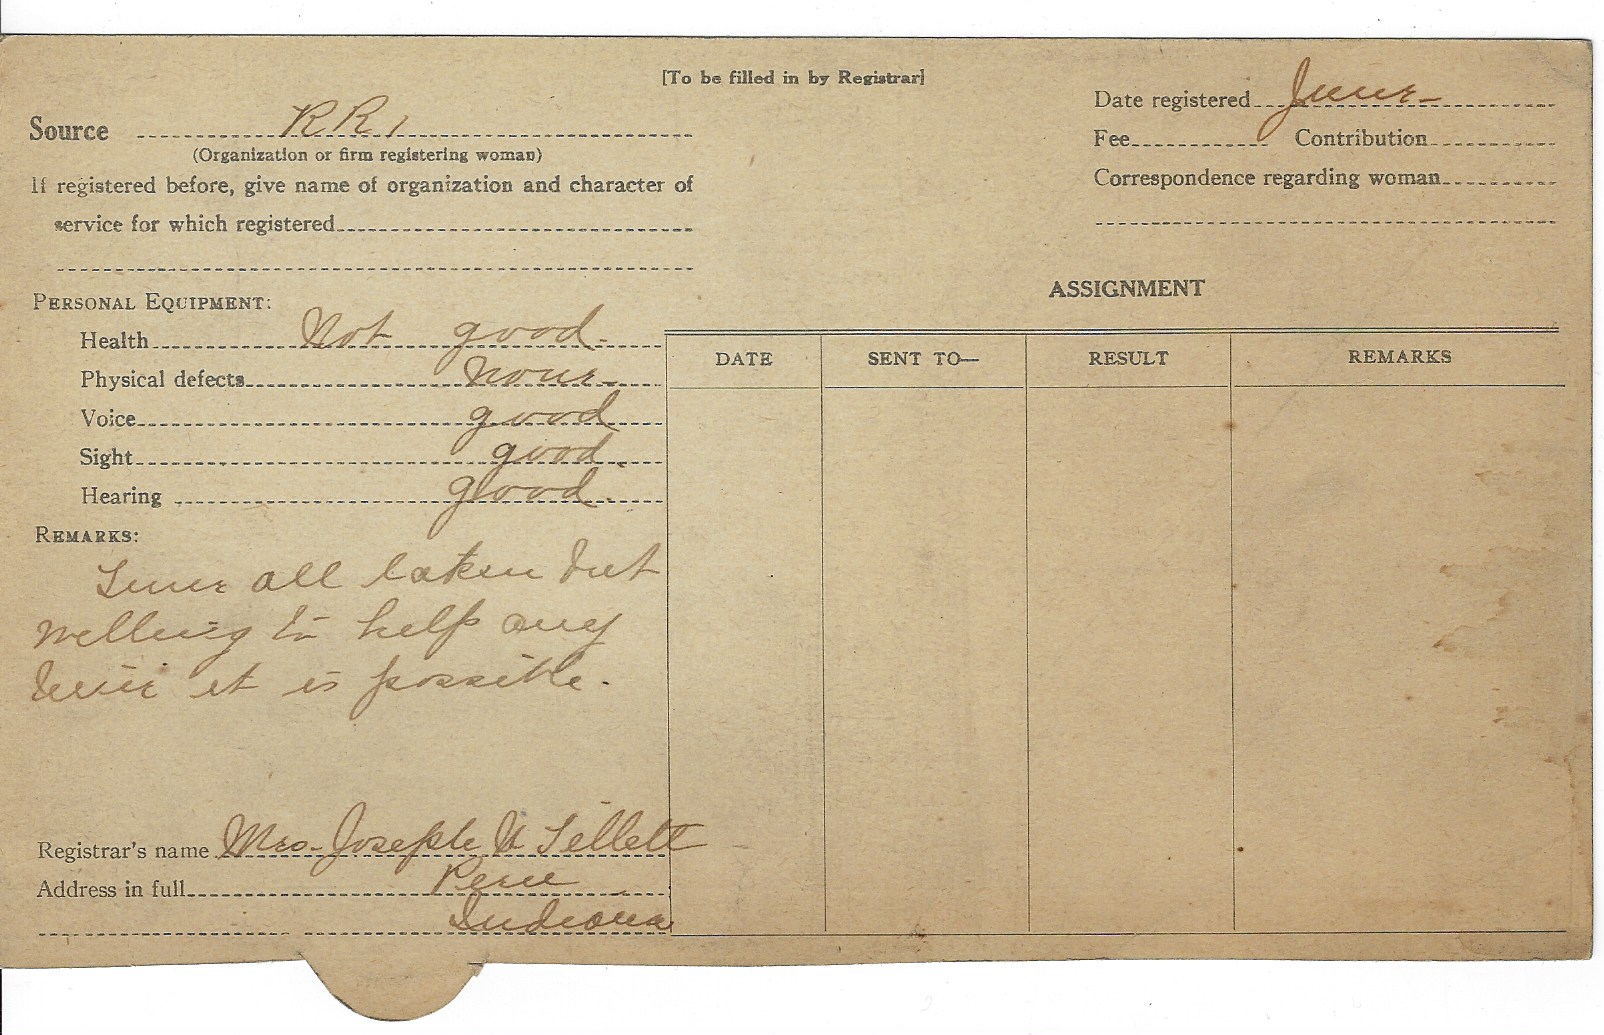 [To be filled in by Registrar]
Source RR1
(Organization or firm registering woman)
If registered before, give name of organization and character of
service for which registered
Date registered June
Fee Contribution
Correspondence regarding woman
PERSONAL EQUIPMENT:
Health Not good.
Physical defects None
Voice good
Sight good.
Hearing good.
REMARKS:
Time all taken but
willing to help any
time it is possible.
Registrar's name Mrs. Joseph N Tillett
Address in full Peru
Indiana
ASSIGNMENT
DATE SENT TO— RESULT REMARKS